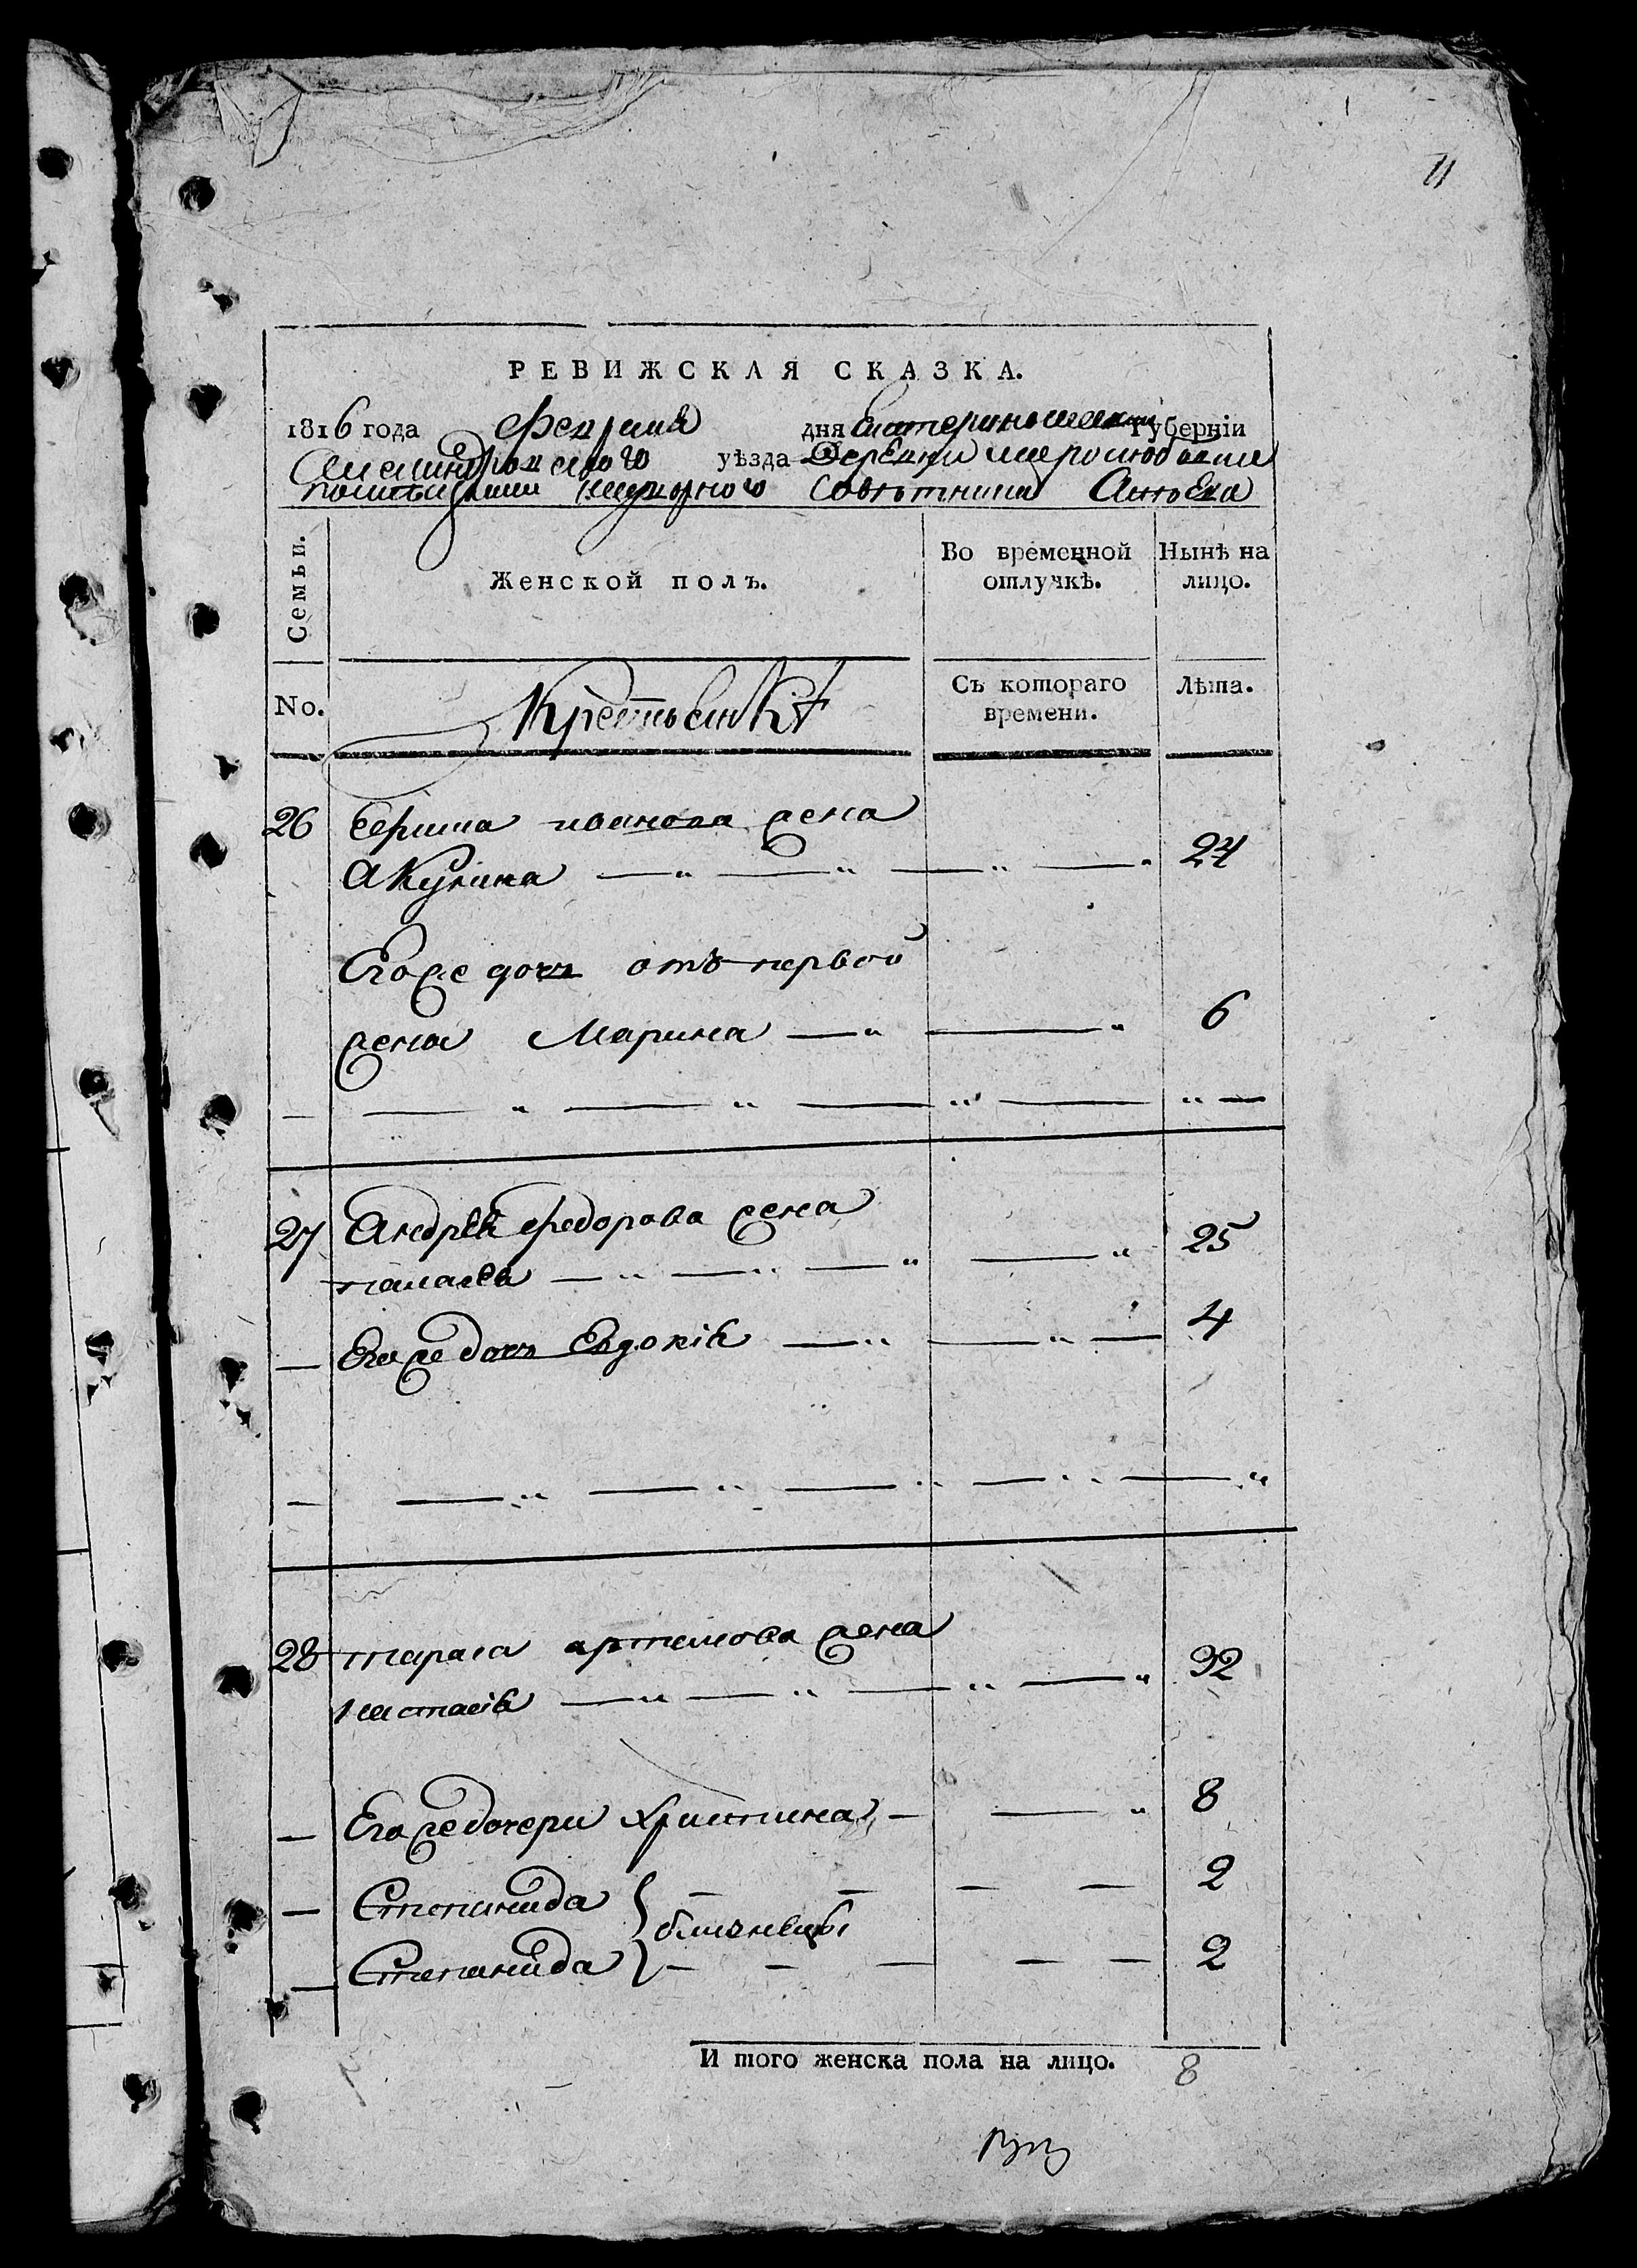 11
РЕВИЖСКАЯ СКАЗКА.
1816 года февраля дня Екатеринославской Губерніи
Александровского уѣзда Деревни миролюбовки
помещицы надворного Совѣтника
Семьи. Женской полъ. Во временной отлучкѣ. Нынѣ на лицо.
No. Крестьянкѣ Съ котораго времени. Лѣта.
26 иванова жена
Акулина 24
Егоже дочь отъ первой
жены Марина 6
27 Андрея федорова жена
палагея 25
Егоже дочь Евдокія 4
28 тараса артемова жена
настасія 32
Егоже дочери христина 8
Степанида } близнецы 2
Степанида 2
И того женска пола на лицо. 8